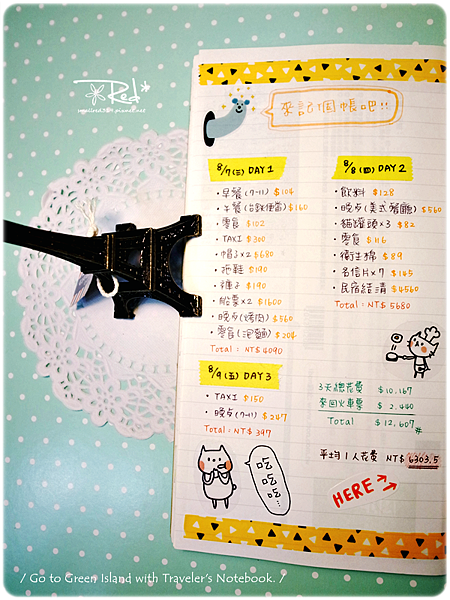 Red
來記個帳吧!!
8/7(三) DAY 1
・早餐(7-11) $104
・午餐(台鐵便當) $160
・零食 $102
・TAXI $300
・帽子×2 $680
・拖鞋 $190
・褲子 $190
・船票×2 $1600
・晚ㄘ(烤肉) $560
・零食(泡麵) $204
Total: NT$ 4090
8/8(四) DAY 2
・飲料 $128
・晚ㄘ(美式餐廳) $560
・貓罐頭×3 $82
・零食 $116
・衛生棉 $89
・名信片×7 $145
・民宿結清 $4560
Total: NT$ 5680
8/9(五) DAY 3
・TAXI $150
・晚ㄘ(7-11) $247
Total: NT$ 397
3天總花費 $10,167
來回火車票 $ 2,440
Total $ 12,607
平均1人花費 NT$ 6303.5
HERE→
吃吃吃…
/ Go to Green Island with Traveler's Notebook. /